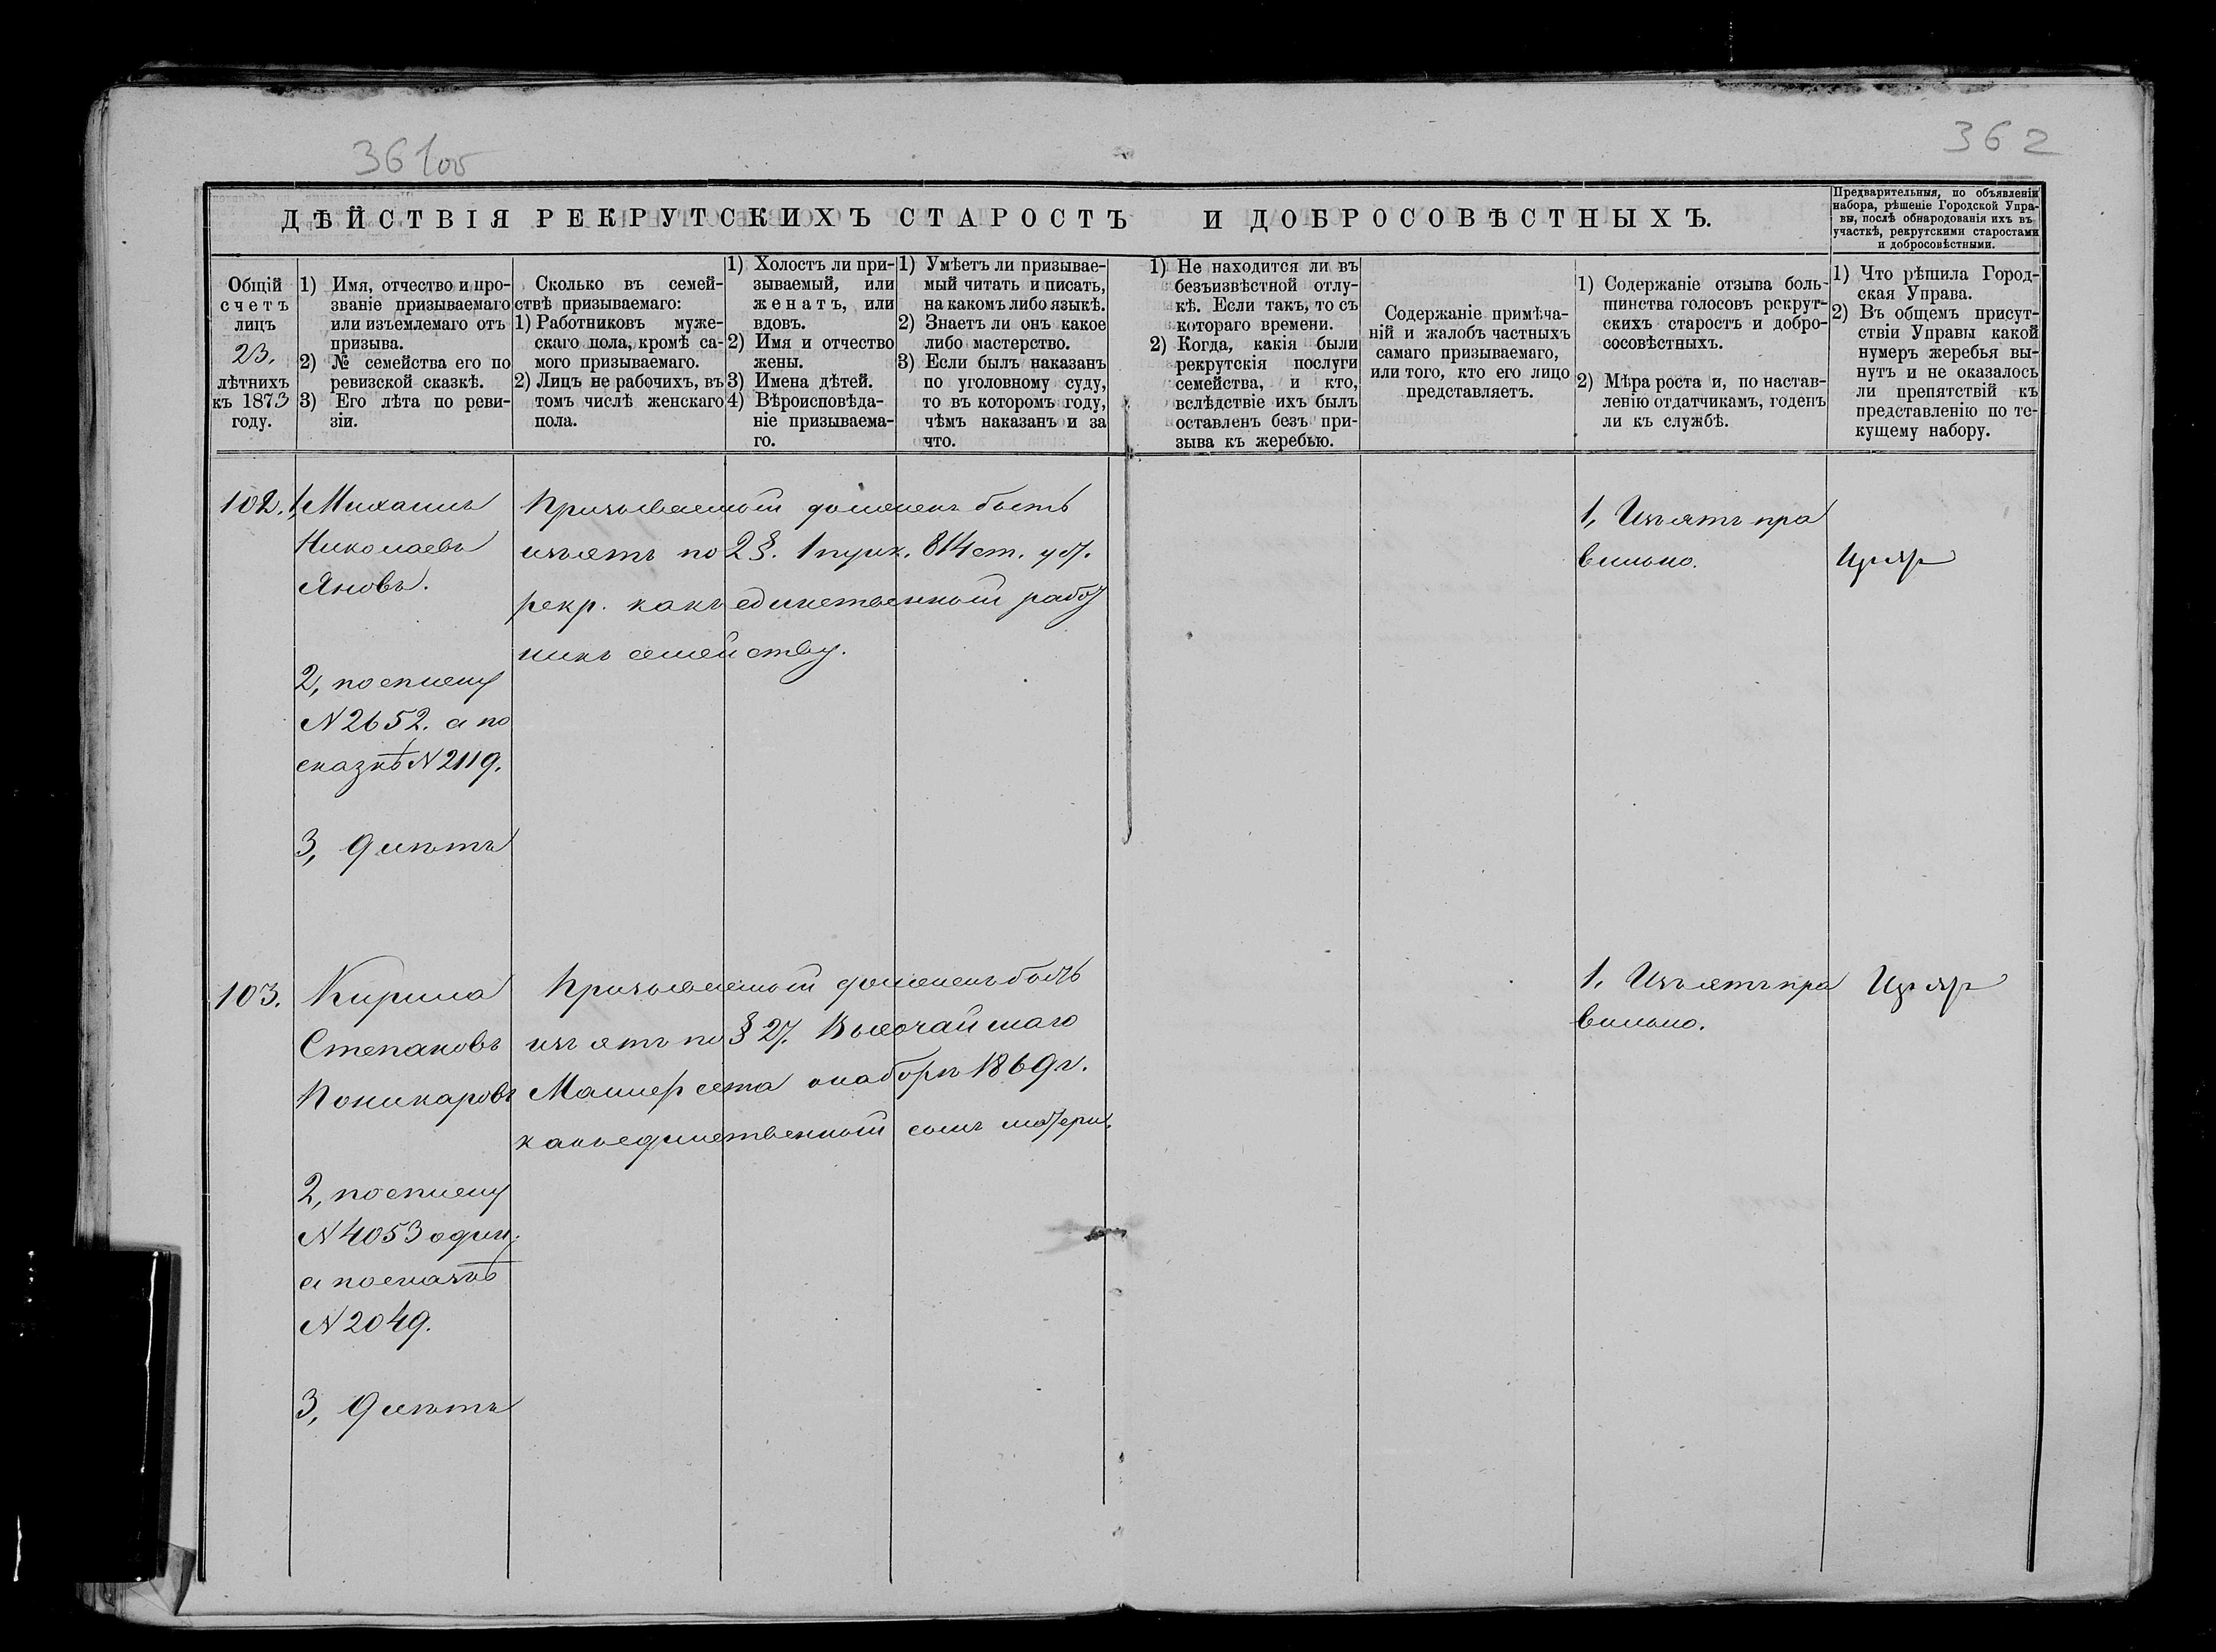 361об
362
ДѢЙСТВІЯ РЕКРУТСКИХЪ СТАРОСТЪ И ДОБРОСОВѢСТНЫХЪ.
Предварительныя, по объявленіи
набора, рѣшеніе Городской Упра-
вы, послѣ обнародованія ихъ въ
участкѣ, рекрутскими старостами
и добросовѣстными.
Общій
счетъ
лицъ
23.
лѣтнихъ
къ 1873
году.
1) Имя, отчество и про-
званіе призываемаго
или изъемлемаго отъ
призыва.
2) № семейства его по
ревизской сказкѣ.
3) Его лѣта по реви-
зіи.
Сколько въ семей-
ствѣ призываемаго:
1) Работниковъ муже-
скаго пола, кромѣ са-
мого призываемаго.
2) Лицъ не рабочихъ, въ
томъ числѣ женскаго
пола.
1) Холостъ ли при-
зываемый, или
женатъ, или
вдовъ.
2) Имя и отчество
жены.
3) Имена дѣтей.
4) Вѣроисповѣда-
ніе призываема-
го.
1) Умѣетъ ли призывае-
мый читать и писать,
на какомъ либо языкѣ.
2) Знаетъ ли онъ какое
либо мастерство.
3) Если былъ наказанъ
по уголовному суду,
то въ которомъ году,
чѣмъ наказанъ и за
что.
1) Не находится ли въ
безъизвѣстной отлу-
кѣ. Если такъ, то съ
котораго времени.
2) Когда, какія были
рекрутскія послуги
семейства, и кто,
вслѣдствіе ихъ былъ
оставленъ безъ при-
зыва къ жеребью.
Содержаніе примѣча-
ній и жалобъ частныхъ
самаго призываемаго,
или того, кто его лицо
представляетъ.
1) Содержаніе отзыва боль-
шинства голосовъ рекрут-
скихъ старостъ и добро-
сосовѣстныхъ.
2) Мѣра роста и, по настав-
ленію отдатчикамъ, годенъ
ли къ службѣ.
1) Что рѣшила Город-
ская Управа.
2) Въ общемъ присут-
ствіи Управы какой
нумеръ жеребья вы-
нутъ и не оказалось
ли препятствій къ
представленію по те-
кущему набору.
102. 1, Михаилъ
Николаевъ
Яновъ.
2, по списку
N 2652. а по
сказкѣ N 2119.
3, 9 лѣтъ
Призываемый долженъ быть
изъятъ по 2 §. 1 пунк. 814 ст. уст.
рекр. какъ единственный работ
никъ семейству.
1, Изъятъ пра
вильно.
103. Кирила
Степановъ
Поникаровъ
2, по списку
N 4053 один.
а по сказкѣ
N 2049.
3, 9 лѣтъ
Призываемый долженъ быть
изъятъ по § 27. Высочайшаго
Манифеста о наборѣ 1869 г.
какъ единственный сынъ матери.
1, Изъятъ пра
вильно.